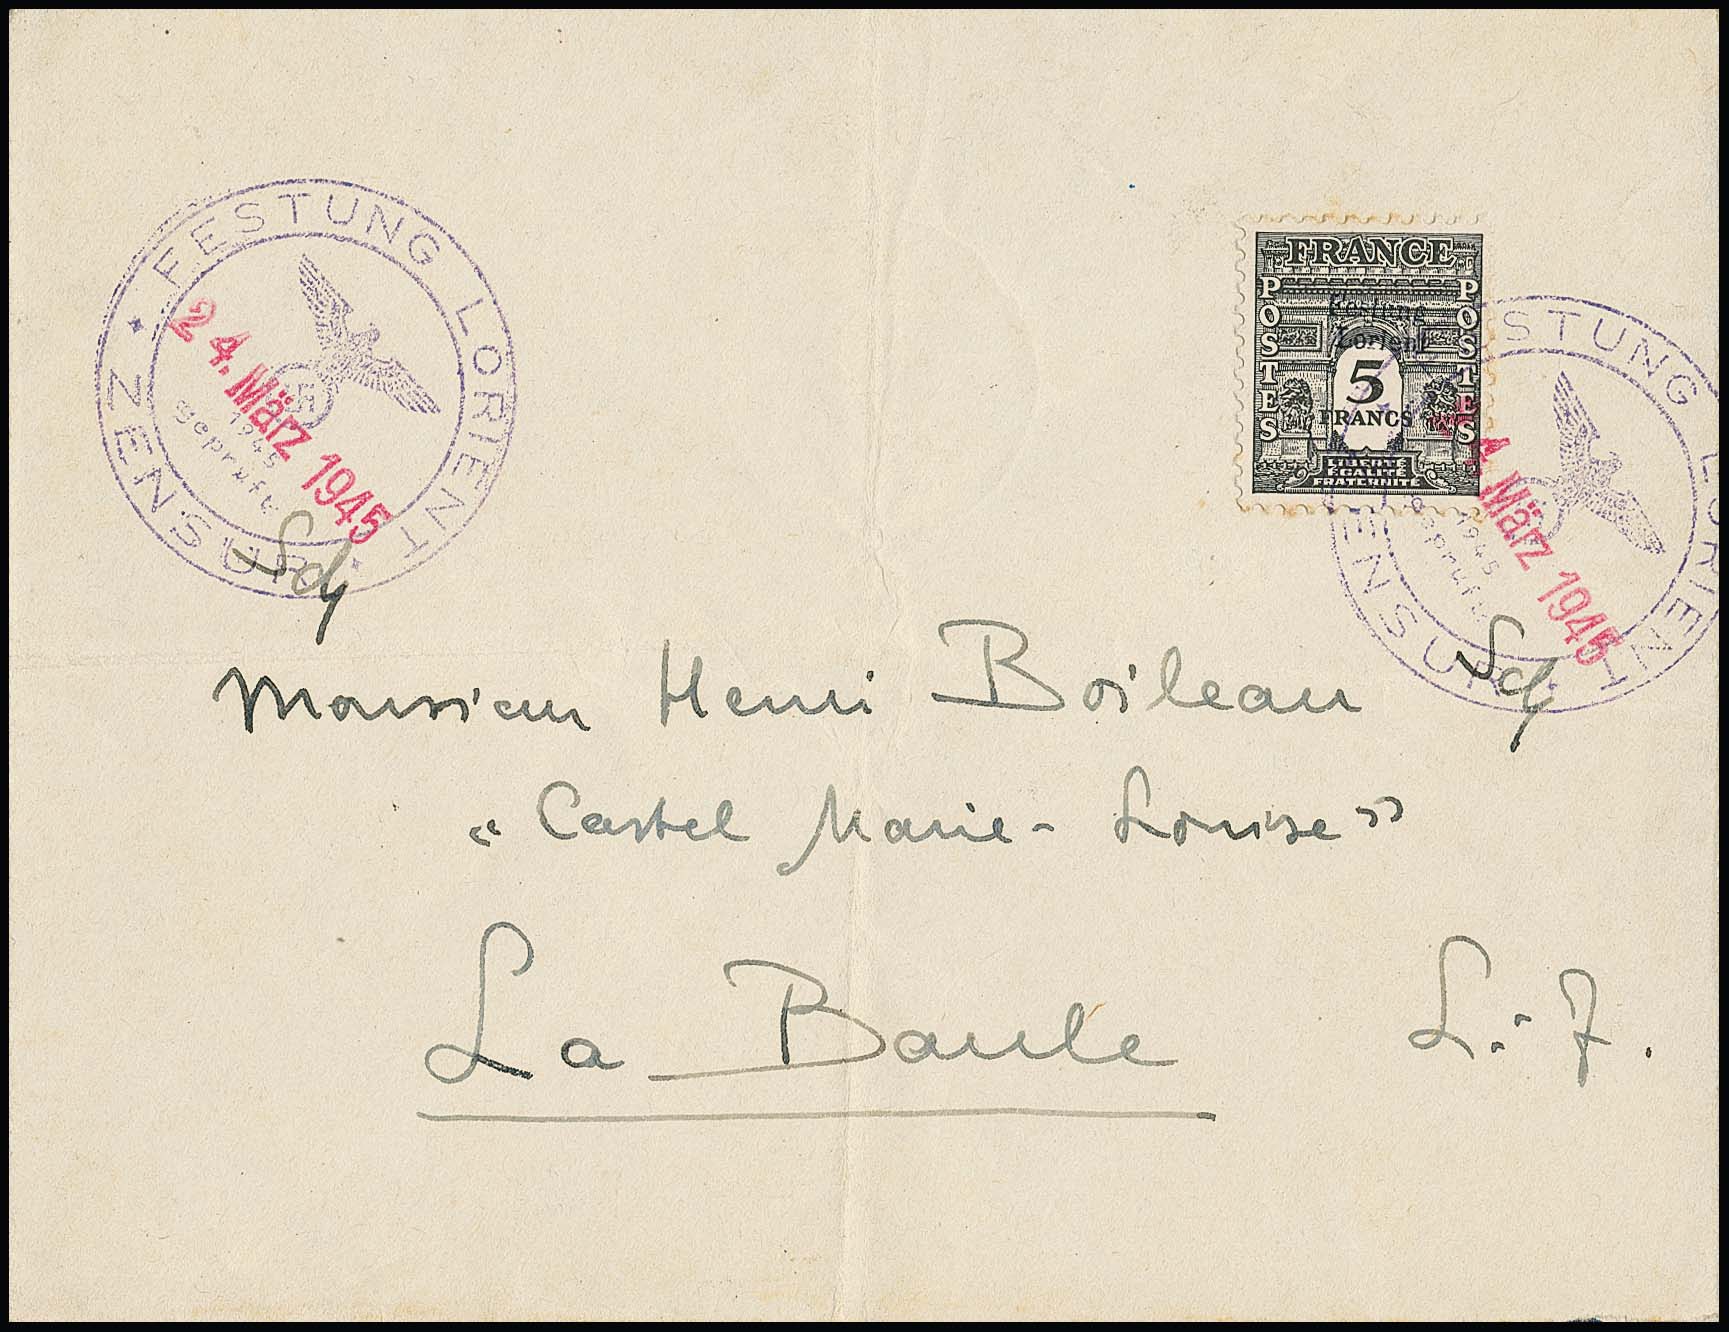 FESTUNG LORIENT
ZENSUR
24. März 1945
1945
geprüft
FRANCE
POSTES
POSTES
Festung
Lorient
5
FRANCS
LIBERTÉ
EGALITÉ
FRATERNITÉ
FESTUNG LORIENT
ZENSUR
24. März 1945
1945
geprüft
Monsieur Henri Boileau
"Castel Marie-Louise"
La Baule L.-I.